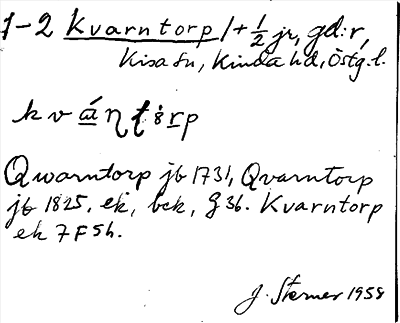 1-2 Kvarntorp 1 + 1/2 jr, gd:r,
Kisa sn, Kinda hd, Östg.l.
Qwarntorp jb 1731, Qvarntorp
jb 1825, ek, bek, G 36. Kvarntorp
ek 7 F 5h.
J. Sterner 1958